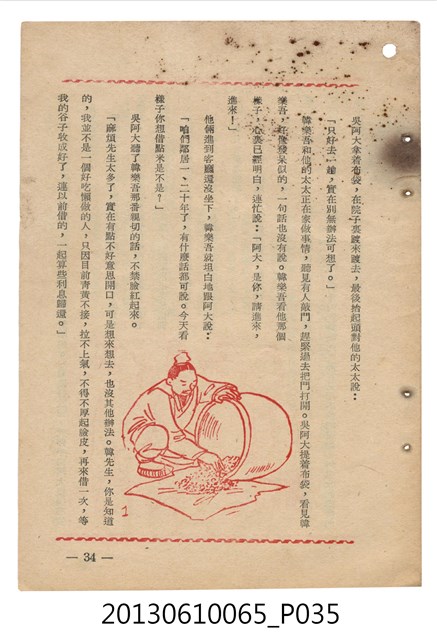 吳阿大拿着布袋，在院子裏踱來踱去，最後抬起頭對他的太太說：
「只好去一趟，實在別無辦法可想了。」
韓樂吾和他的太太正在家做事情，聽見有人敲門，趕緊過去把門打開。吳阿大提着布袋，看見韓
樂吾，好像發呆似的，一句話也沒有說。韓樂吾看他那個
樣子，心裏已經明白，連忙說：「阿大，是你，請進來，
進來！」
他倆進到客廳還沒坐下，韓樂吾就坦白地跟阿大說：
「咱們鄰居一、二十年了，有什麼話都可說。今天看
樣子你想借點米是不是？」
吳阿大聽了韓樂吾那番親切的話，不禁臉紅起來。
「麻煩先生太多了，實在有點不好意思開口，可是想來想去，也沒其他辦法。韓先生，你是知道
的，我並不是一個好吃懶做的人，只因目前靑黃不接，拉不上氣，不得不厚起臉皮，再來借一次，等
我的谷子收成好了，連以前借的，一起算些利息歸還。」
1
— 34 —
20130610065_P035